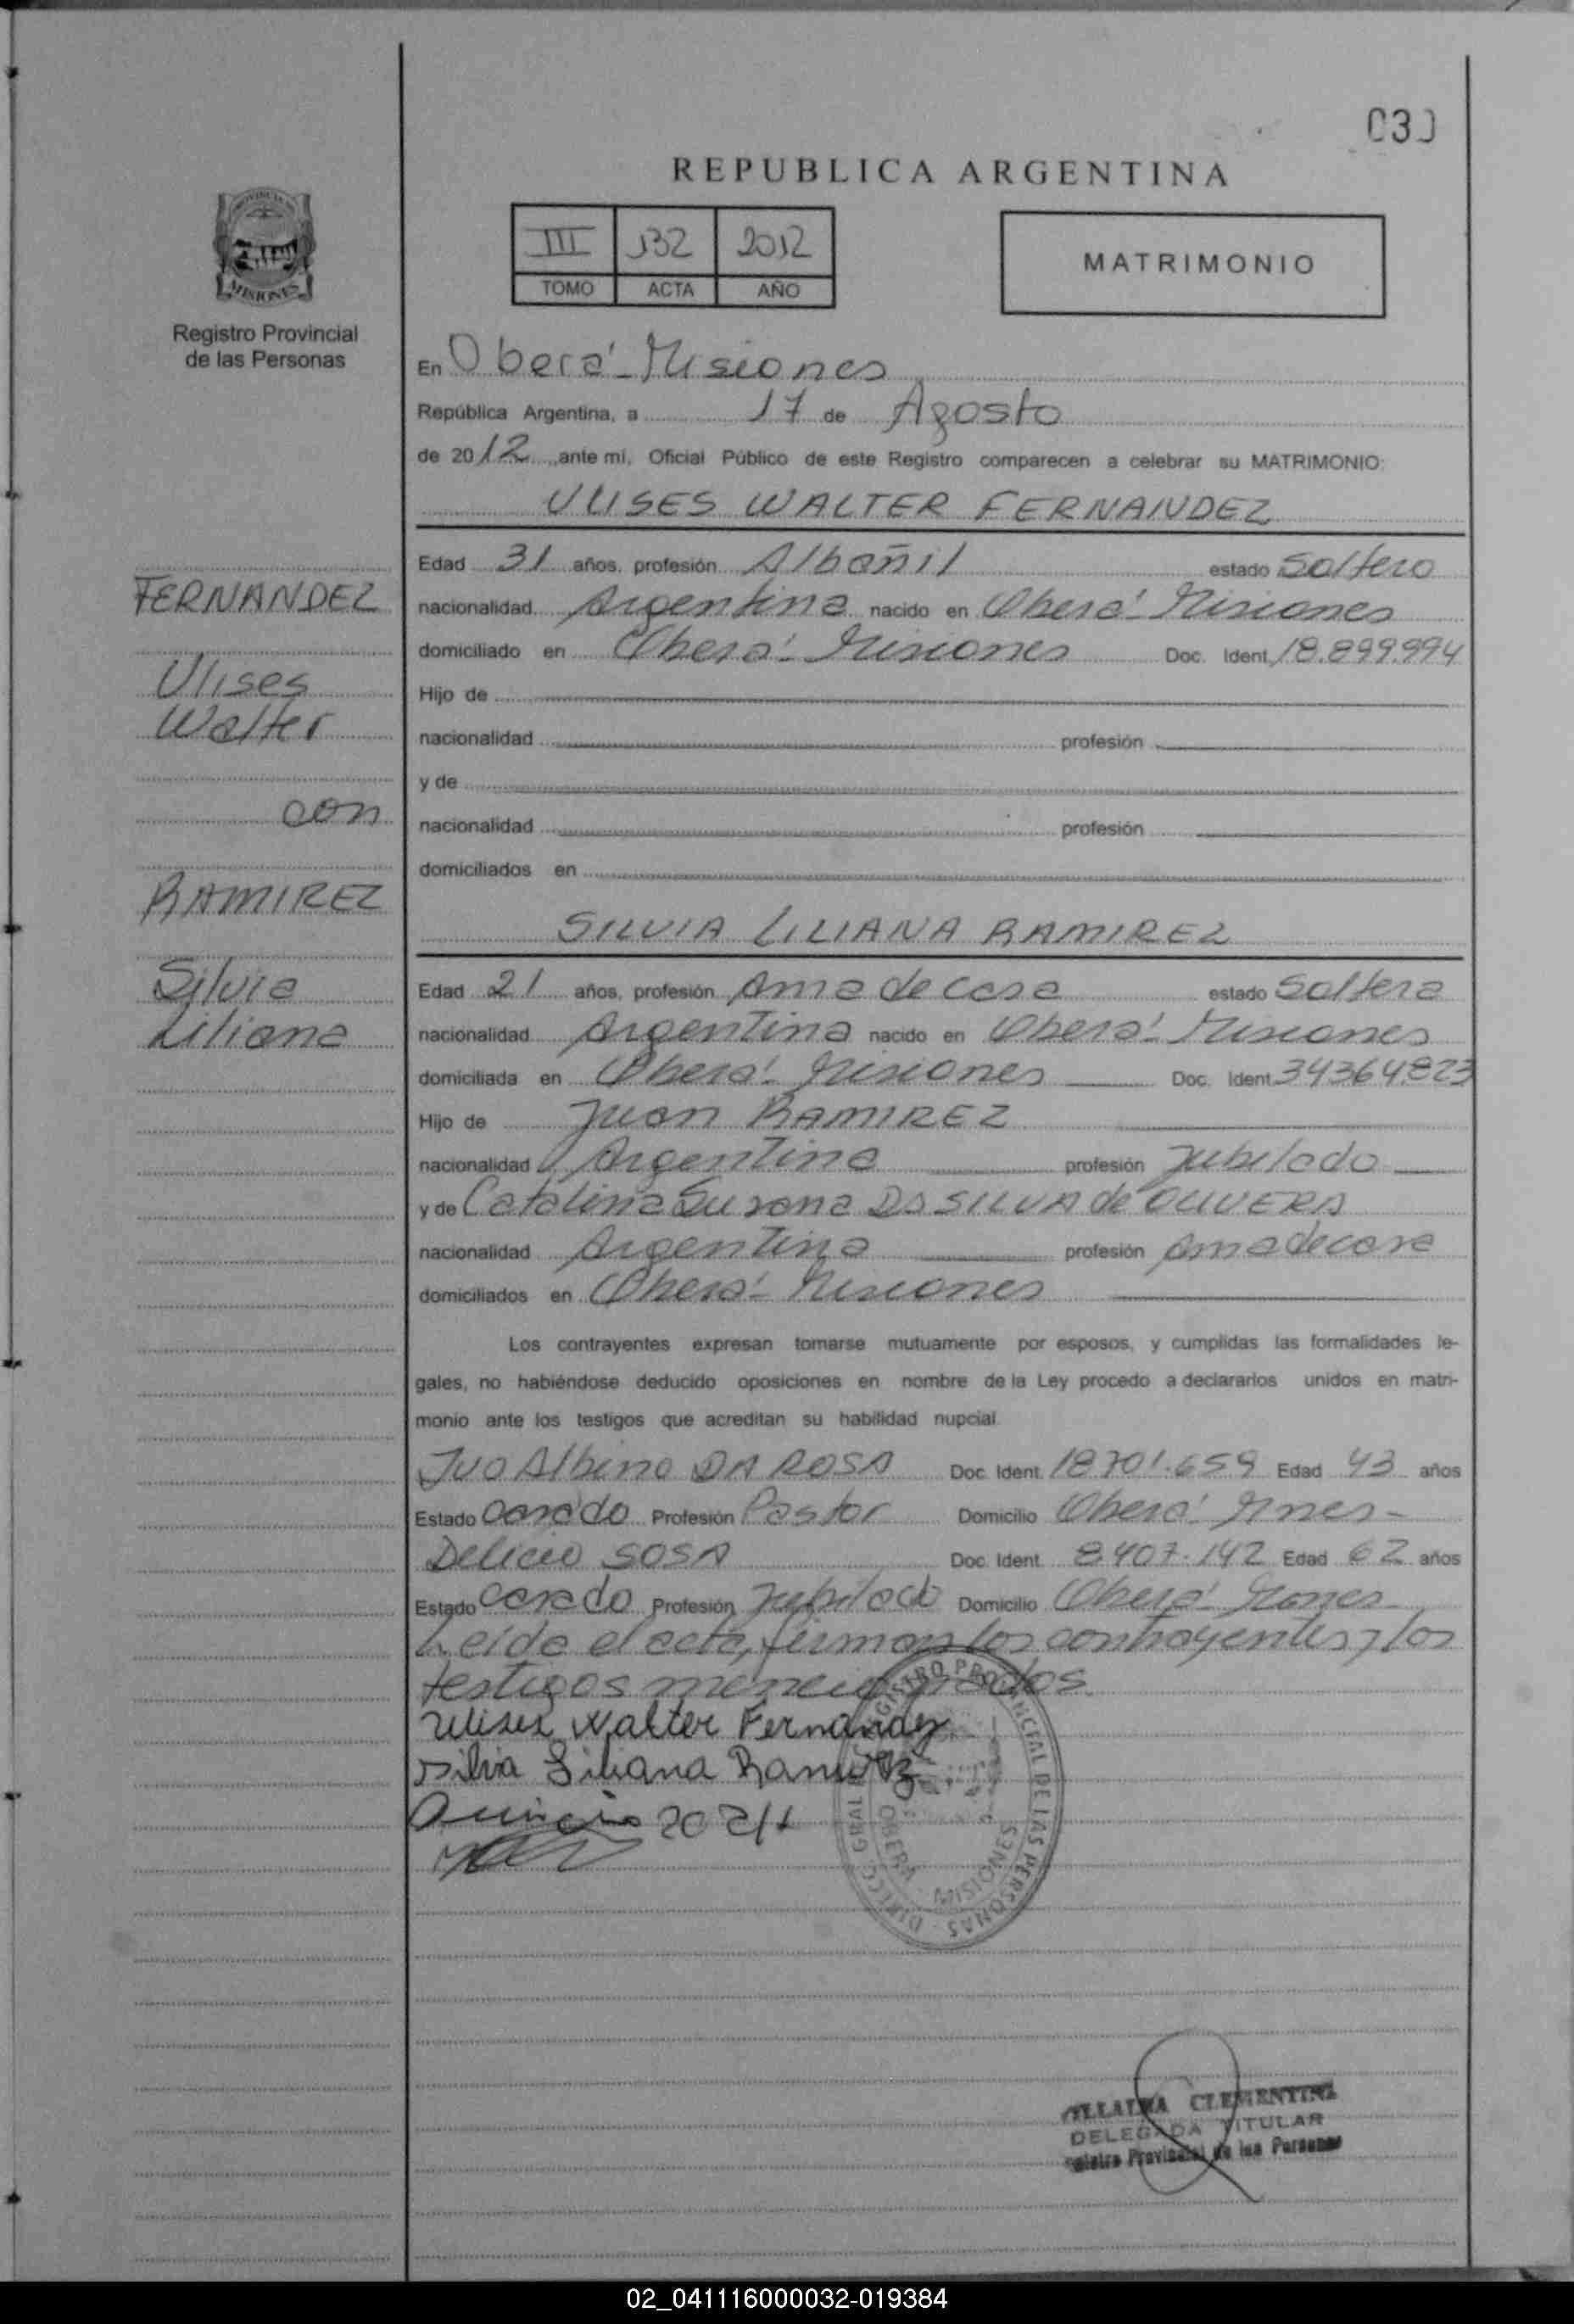 031
REPUBLICA ARGENTINA
III 132 2012
TOMO ACTA AÑO
MATRIMONIO
MISIONES
Registro Provincial
de las Personas
En Oberá - Misiones
República Argentina, a 17 de Agosto
de 2012 ante mi, Oficial Público de este Registro comparecen a celebrar su MATRIMONIO:
ULISES WALTER FERNANDEZ
Edad 31 años, profesión Albañil estado Soltero
nacionalidad Argentina nacido en Oberá - Misiones
domiciliado en Oberá - Misiones Doc. Ident. 18.899.994
Hijo de
nacionalidad profesión
y de
nacionalidad profesión
domiciliados en
FERNANDEZ
Ulises
Walter
con
RAMIREZ
Silvia
Liliana
SILVIA LILIANA RAMIREZ
Edad 21 años, profesión Ama de casa estado Soltera
nacionalidad Argentina nacido en Oberá - Misiones
domiciliada en Oberá - Misiones Doc. Ident. 34364823
Hijo de Juan RAMIREZ
nacionalidad Argentina profesión Jubilado
y de Catalina Susana DA SILVA de OLIVERA
nacionalidad Argentina profesión Ama de casa
domiciliados en Oberá - Misiones
Los contrayentes expresan tomarse mutuamente por esposos, y cumplidas las formalidades le-
gales, no habiéndose deducido oposiciones en nombre de la Ley procedo a declararlos unidos en matri-
monio ante los testigos que acreditan su habilidad nupcial
Ivo Albino DA ROSA Doc. Ident. 18701.659 Edad 43 años
Estado casado Profesión Pastor Domicilio Oberá - Mnes -
Delicio SOSA Doc. Ident. 8.407.142 Edad 62 años
Estado casado Profesión Jubilado Domicilio Oberá -
Leída el acta, firman los contrayentes y los
testigos mencionados.
Ulises Walter Fernandez
Silvia Liliana Ramirez
DIRECC. GRAL REGISTRO PROVINCIAL DE LAS PERSONAS
OBERA MISIONES
CLEMENTINA
DELEGADA TITULAR
Registro Provincial de las Personas
02_041116000032-019384